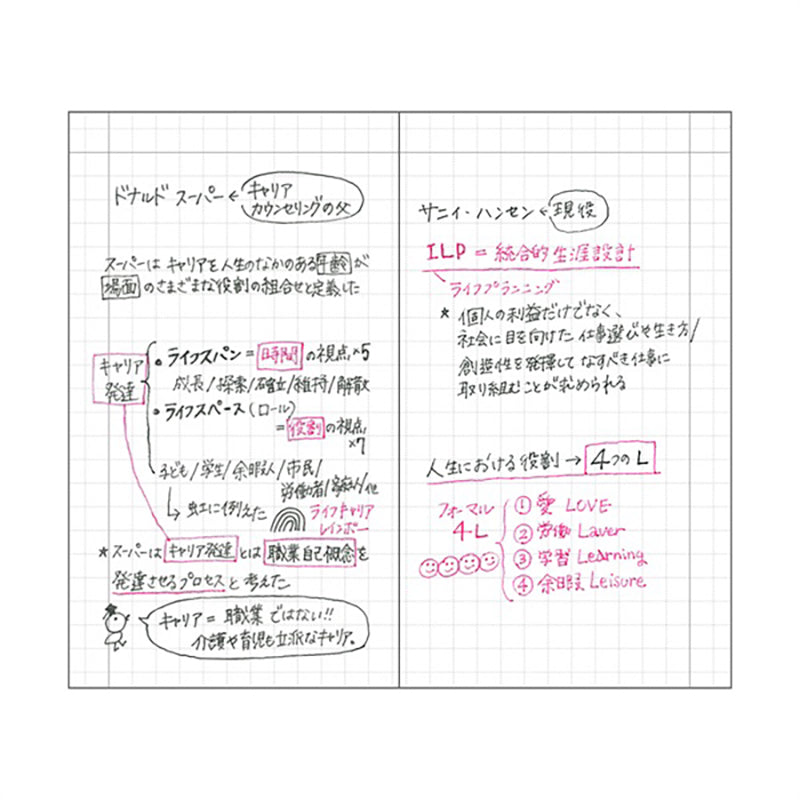 ドナルド スーパー ← キャリア
カウンセリングの父
スーパーは キャリアを人生のなかのある年齢が
場面のさまざまな役割の組合せと定義した
キャリア
発達
• ライフスパン = 時間 の視点 ×5
成長/探索/確立/維持/解散
• ライフスペース (ロール)
= 役割の視点
×7
子ども/学生/余暇人/市民/
労働者/家庭人/他
↳ 虹に例えた
ライフキャリア
レインボー
* スーパーは キャリア発達 とは 職業自己概念 を
発達させるプロセスと考えた
キャリア = 職業 ではない!!
介護や育児も立派なキャリア。
サニィ・ハンセン ← 現役
ILP = 統合的生涯設計
ライフプランニング
* 個人の利益だけでなく、
社会に目を向けた 仕事選びや生き方/
創造性を発揮して なすべき仕事に
取り組むことが求められる
人生における役割 → 4つのL
フォーマル
4-L
① 愛 LOVE
② 労働 Laver
③ 学習 Learning
④ 余暇 Leisure